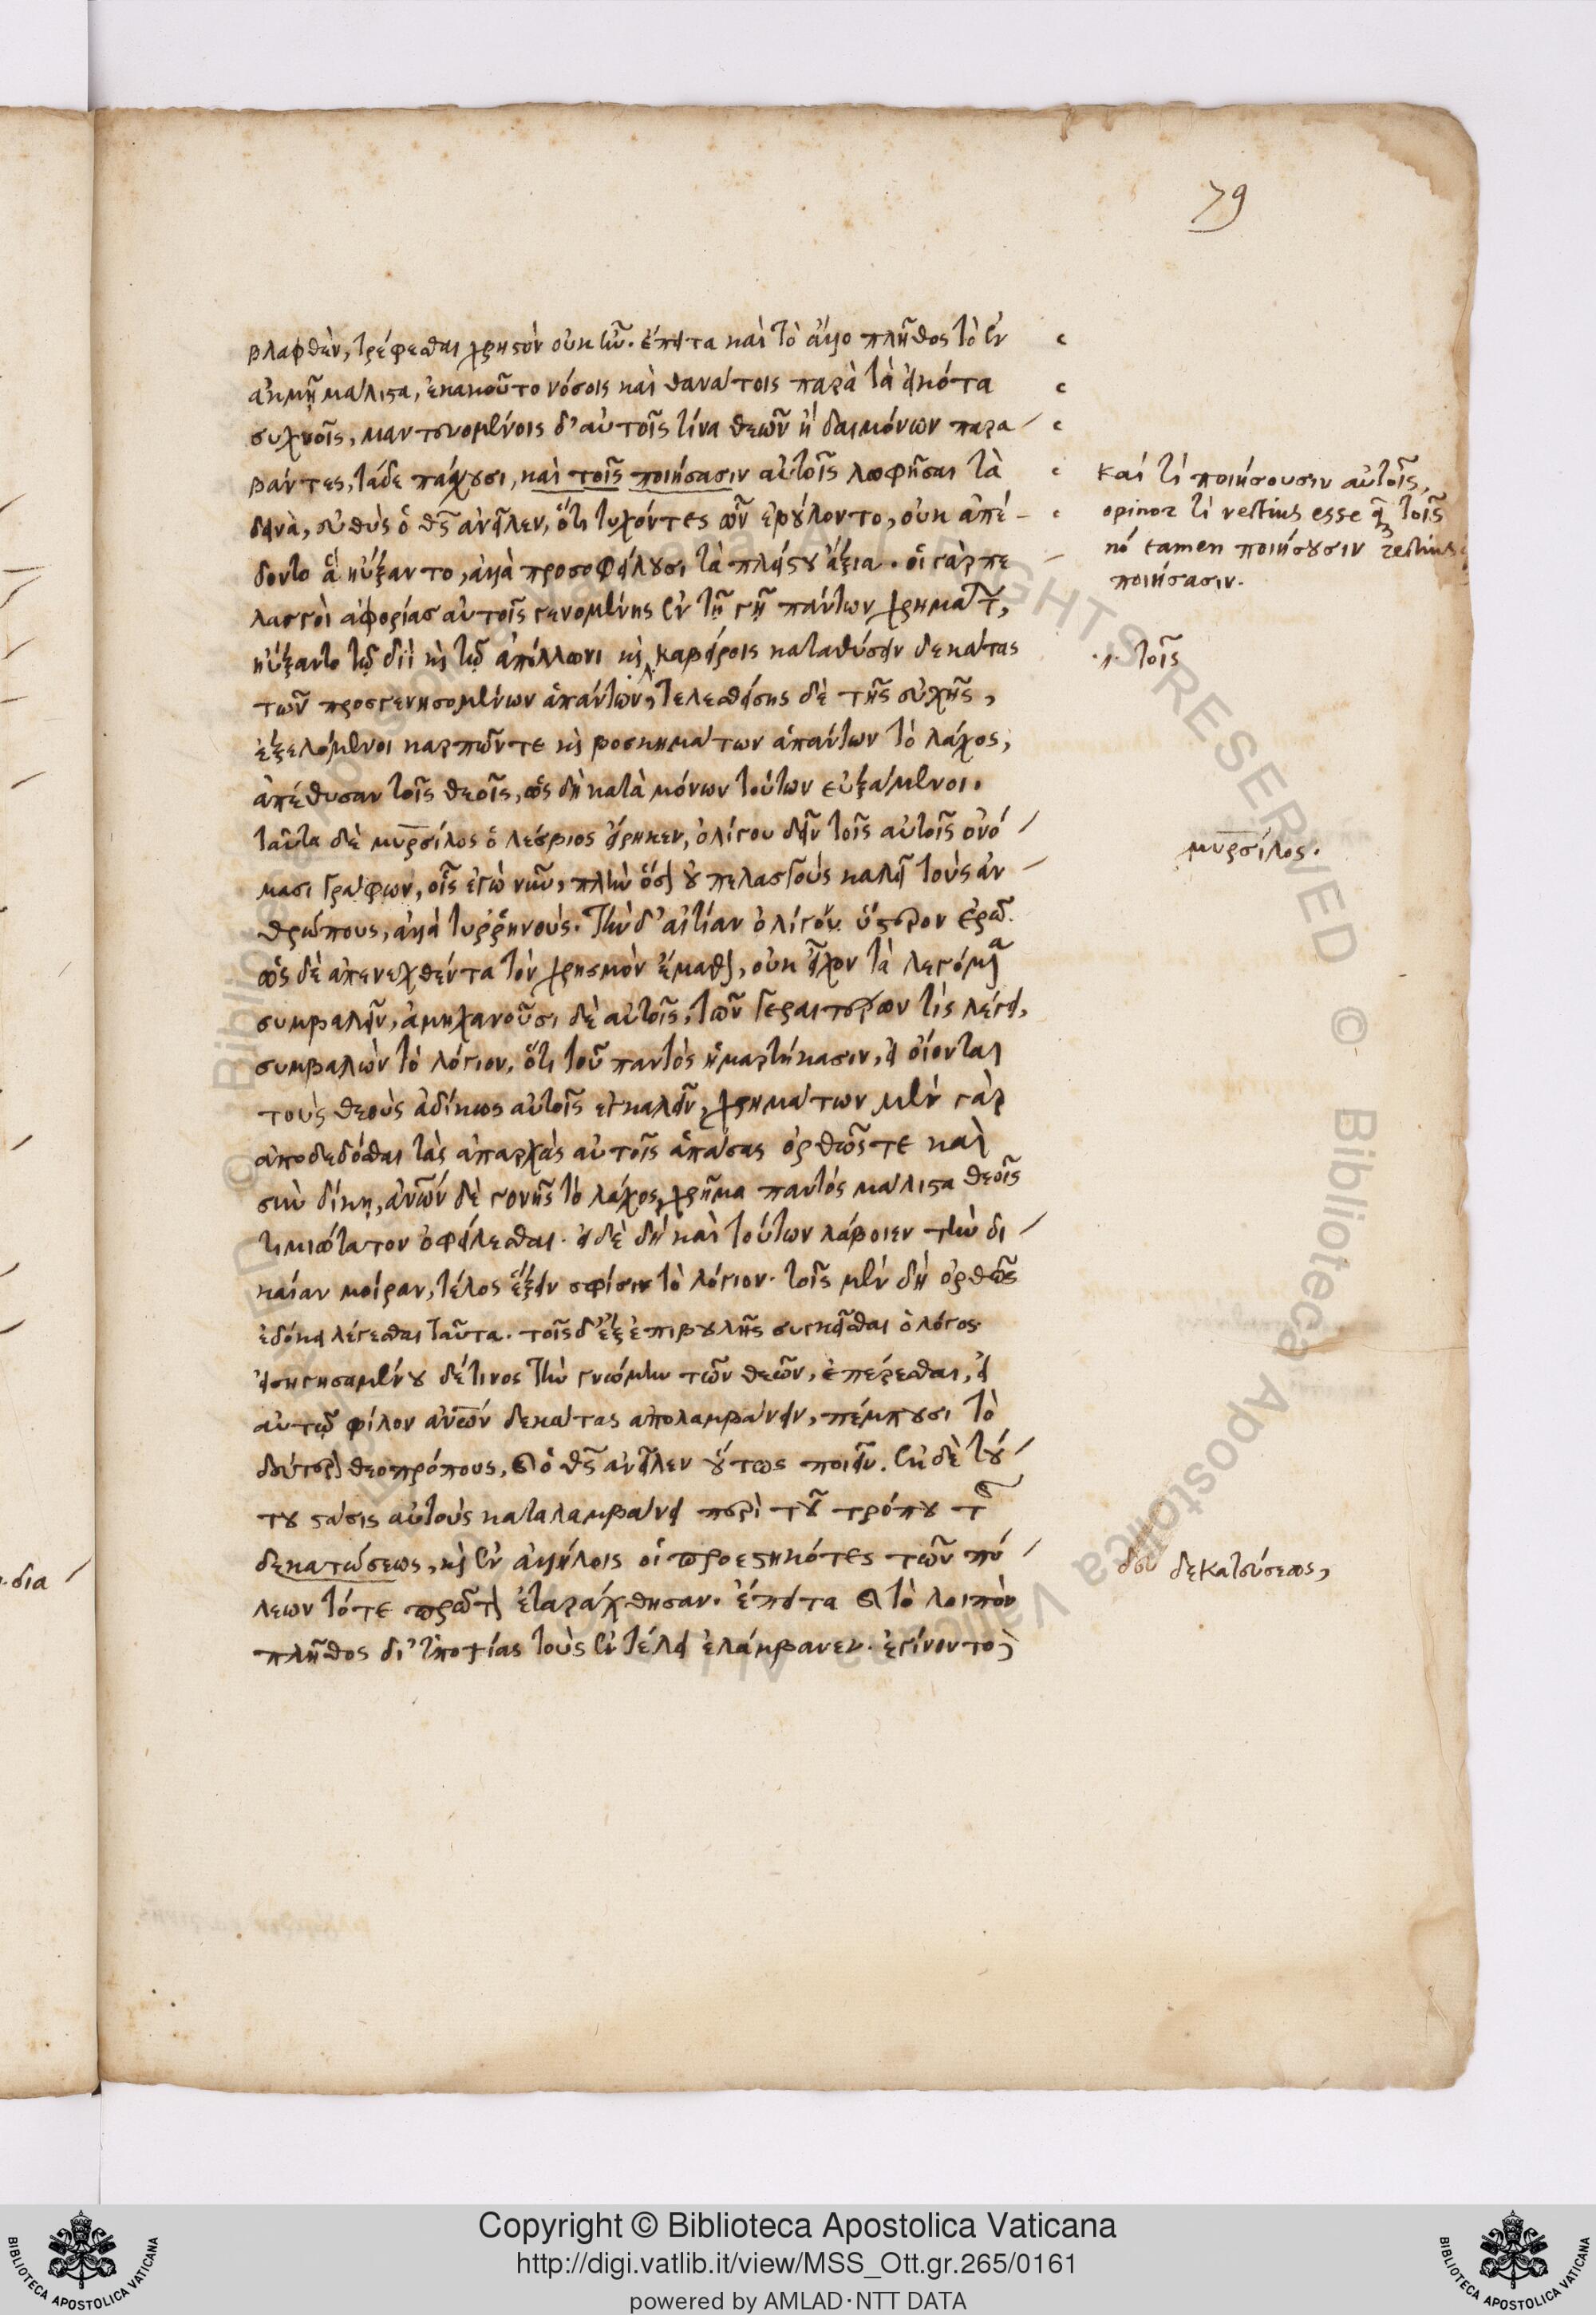 79
βλαφθὲν, τρέφεσθαι χρηστὸν οὐκ ἦν. ἔπειτα καὶ τὸ ἄλλο πλῆθος τὸ ἐν
ἀκμῇ μάλιστα, ἐκακοῦτο νόσοις καὶ θανάτοις παρὰ τὰ εἰκότα
συχνοῖς, μαντευομένοις δ' αὐτοῖς τίνα θεῶν ἢ δαιμόνων παρα
βάντες, τάδε πάσχουσι, καὶ τοῖς ποιήσασιν αὐτοῖς λωφῆσαι τὰ
δεινὰ, εὐθὺς ὁ θς ἀνεῖλεν, ὅτι τυχόντες ὧν ἐβούλοντο, οὐκ ἀπέ-
δοντο ἃ ηὔξαντο, ἀλλὰ προσοφείλουσι τὰ πλείστου ἄξια. οἱ γὰρ πε
λασγοὶ ἀφορίας αὐτοῖς γενομένης ἐν τῇ γῇ πάντων χρημάτ,
ηὔξαντο τῷ διὶ καὶ τῷ ἀπόλλωνι καὶ καβείροις καταθύσειν δεκάτας
τῶν προσγενησομένων ἁπάντων, τελεσθείσης δὲ τῆς εὐχῆς,
ἐξελόμενοι καρπῶν τε καὶ βοσκημάτων ἁπάντων τὸ λάχος,
ἀπέθυσαν τοῖς θεοῖς, ὡς δὴ κατὰ μόνων τούτων εὐξάμενοι.
ταῦτα δὲ μυρσίλος ὁ λέσβιος εἴρηκεν, ὀλίγου δεῖν τοῖς αὐτοῖς ὀνό
μασι γράφων, οἷς ἐγὼ νῦν, πλὴν ὅσον οὐ πελασγοὺς καλεῖ τοὺς ἀν
θρώπους, ἀλλὰ τυρρηνούς. τὴν δ' αἰτίαν ὀλίγον ὕστερον ἐρῶ.
ὡς δὲ ἀπενεχθέντα τὸν χρησμὸν ἔμαθον, οὐκ εἶχον τὰ λεγόμενα
συμβαλεῖν, ἀμηχανοῦσι δὲ αὐτοῖς, τῶν γεραιτέρων τὶς λέγει,
συμβαλὼν τὸ λόγιον, ὅτι τοῦ παντὸς ἡμαρτήκασιν, εἰ οἴονται
τοὺς θεοὺς ἀδίκως αὐτοῖς ἐγκαλεῖν, χρημάτων μὲν γὰρ
ἀποδεδόσθαι τὰς ἀπαρχὰς αὐτοῖς ἁπάσας ὀρθῶς τε καὶ
σὺν δίκῃ, ἀνων δὲ γονῆς τὸ λάχος, χρῆμα παντὸς μάλιστα θεοῖς
τιμιώτατον ὀφείλεσθαι. εἰ δὲ δὴ καὶ τούτων λάβοιεν τὴν δι
καίαν μοίραν, τέλος ἕξειν σφίσιν τὸ λόγιον. τοῖς μὲν δὴ ὀρθῶς
ἐδόκει λέγεσθαι ταῦτα. τοῖς δ' ἐξ ἐπιβουλῆς συγκεῖσθαι ὁ λόγος.
εἰσηγησαμένου δέ τινος τὴν γνώμην τῶν θεῶν, ἐπέρεσθαι, εἰ
αὐτῷ φίλον ἀνων δεκάτας ἀπολαμβάνειν, πέμπουσι τὸ
δεύτερον θεοπρόπους, καὶ ὁ θς ἀνεῖλεν οὕτως ποιεῖν. ἐκ δὲ τού
του στάσις αὐτοὺς καταλαμβάνει περὶ τοῦ τρόπου τῆς
δεκατώσεως, καὶ ἐν ἀλλήλοις οἱ προεστηκότες τῶν πό
λεων τότε πρῶτον ἐταράχθησαν. ἔπειτα καὶ τὸ λοιπὸν
πλῆθος δι' ὑποψίας τοὺς ἐν τέλει ἐλάμβανεν. ἐγίνοντο
καὶ τί ποιήσουσιν αὐτοῖς,
opinor τί rectius esse q̃ τοῖς
nō tamen ποιήσουσιν rectius
ποιήσασιν.
τοῖς
μυρσίλος.
δεκατεύσεως,
δια
Copyright © Biblioteca Apostolica Vaticana
http://digi.vatlib.it/view/MSS_Ott.gr.265/0161
powered by AMLAD·NTT DATA